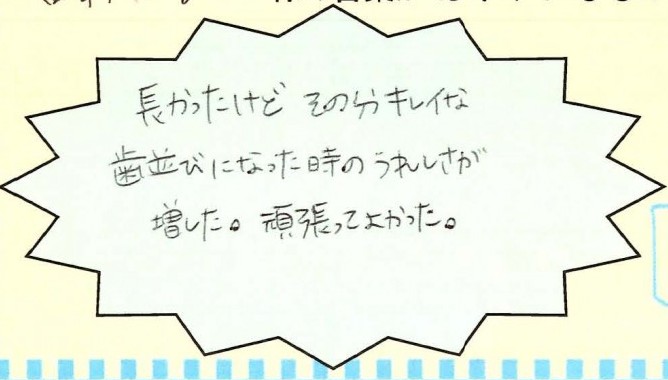 長かったけど その分キレイな
歯並びになった時のうれしさが
増した。頑張ってよかった。